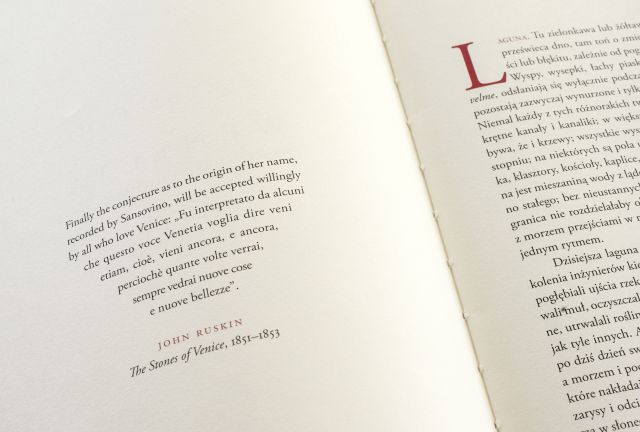 Finally the conjecture as to the origin of her name,
recorded by Sansovino, will be accepted willingly
by all who love Venice: „Fu interpretato da alcuni
che questo voce Venetia voglia dire veni
etiam, cioè, vieni ancora, e ancora,
perciochè quante volte verrai,
sempre vedrai nuove cose
e nuove bellezze”.
JOHN RUSKIN
The Stones of Venice, 1851–1853
LAGUNA. Tu zielonkawa lub żółtaw
prześwieca dno, tam toń o zmie
ści lub błękitu, zależnie od pog
Wyspy, wysepki, łachy piask
velme, odsłaniają się wyłącznie podcza
pozostają zazwyczaj wynurzone i tylk
Niemal każdy z tych różnorakich tw
krętne kanały i kanaliki; w więks
bywa, że i krzewy; wszystkie wys
stopniu; na niektórych są pola u
ka, klasztory, kościoły, kaplice,
na jest mieszaniną wody z ląd
no stałego; bez nieustannych
granica nie rozdzielałaby o
z morzem przejściami w r
jednym rytmem.
Dzisiejsza laguna
kolenia inżynierów kie
pogłębiali ujścia rzek
wali muł, oczyszczal
ne, utrwalali roślin
jak tyle innych. A
po dziś dzień sw
a morzem i po
które nakłada
zarysy i odci
w słone